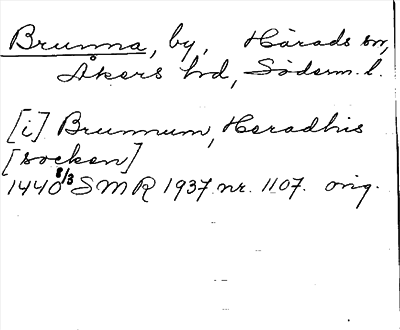 Brunna, by, Härads sn,
Åkers hd, Söderm. l.
[i] Brunnum, Heradhis
[socken]
1440 8/3 SMR 1937 nr. 1107. orig.